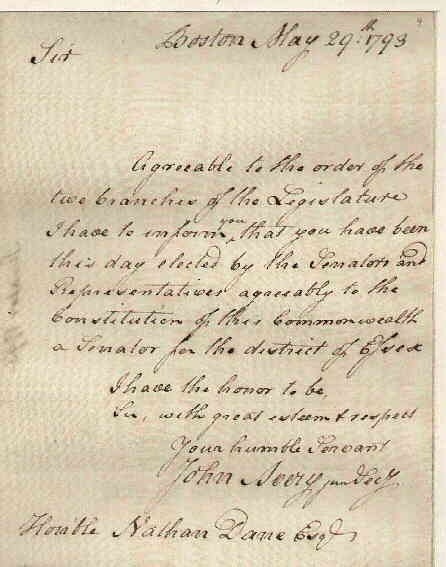 Boston May 29.th 1793
Sir
Agreeable to the order of the
two branches of the Legislature
I have to inform you, that you have been
this day elected by the Senators and
Representatives agreeably to the
Constitution of this Commonwealth
a Senator for the district of Essex
I have the honor to be,
Sir, with great esteem & respect
Your humble Servant
John Avery jun Secy.
Honble Nathan Dane Esqr